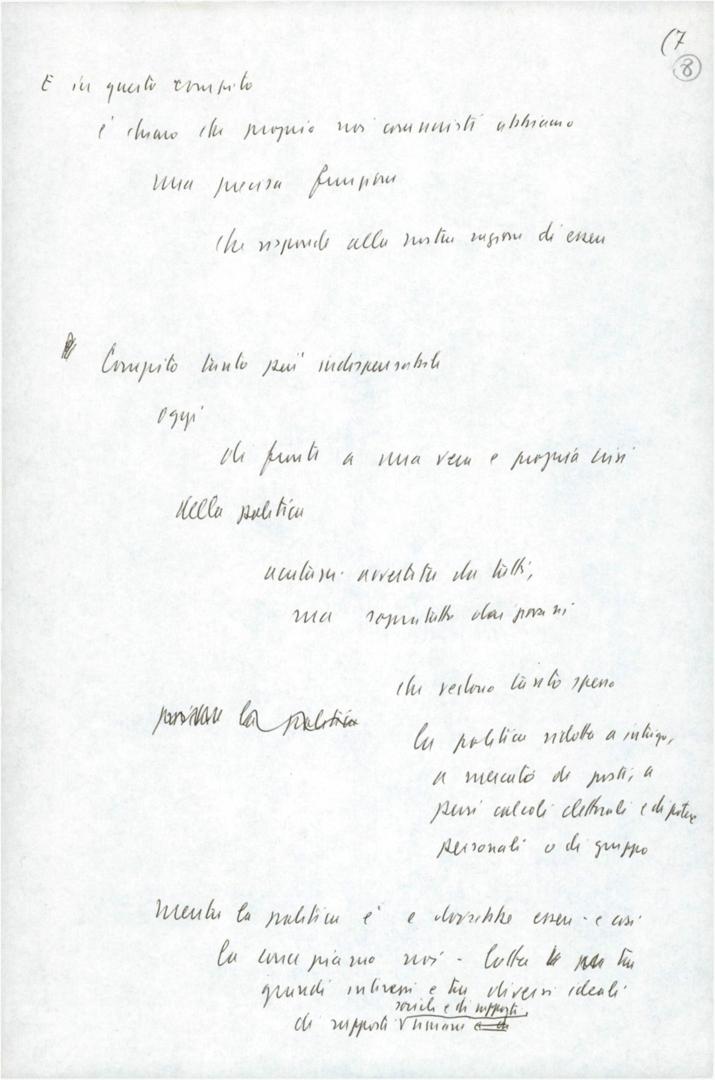 (7
8
E in questo compito
è chiaro che proprio noi comunisti abbiamo
una precisa funzione
che risponde alla nostra ragione di essere
Compito tanto più indispensabile
oggi
di fronte a una vera e propria crisi
della politica
avvertita da tutti,
ma soprattutto dai giovani
che vedono tanto spesso
la politica
la politica ridotta a intrigo,
a mercato di posti, a
puri calcoli elettorali e di potere
personali o di gruppo
Mentre la politica è e dovrebbe essere - e così
la concepiamo noi - lotta tra
grandi interessi e tra diversi ideali
sociali e di rapporti
di rapporti umani